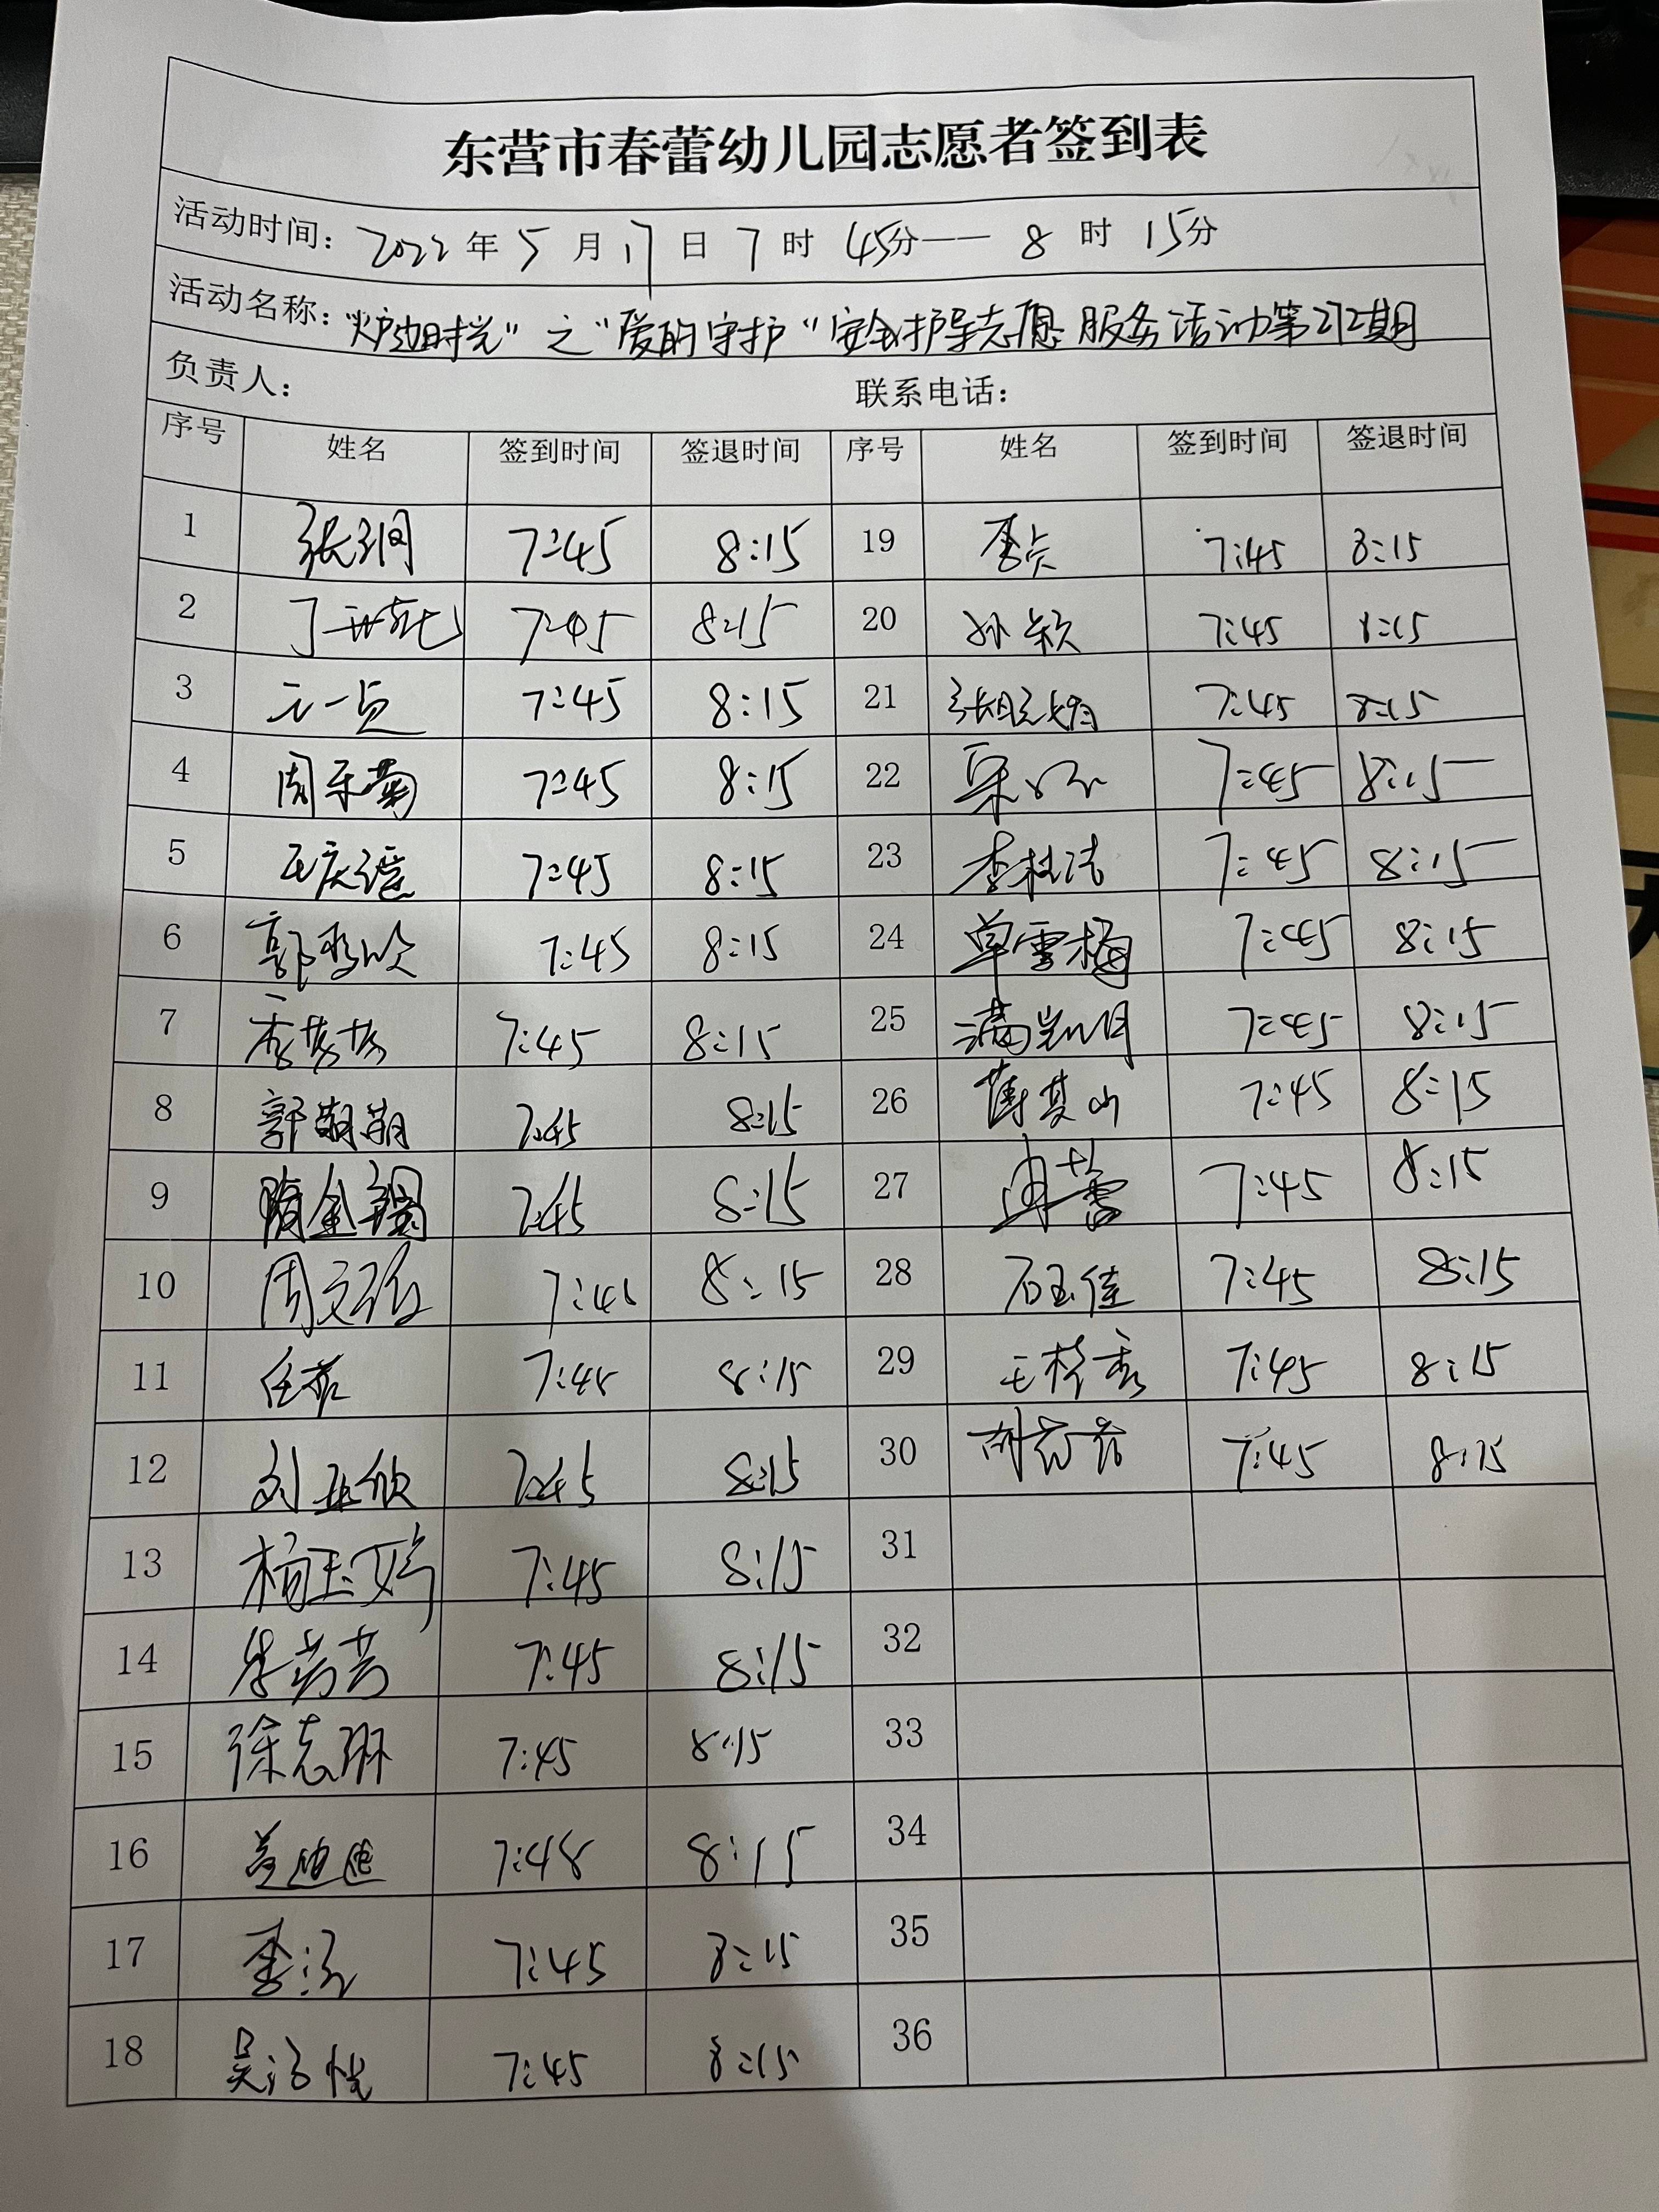 东营市春蕾幼儿园志愿者签到表
活动时间：2022年5月17日7时45分——8时15分
活动名称：“炉边时光”之“爱的守护”安全护导志愿服务活动第212期
负责人： 联系电话：
序号 姓名 签到时间 签退时间 序号 姓名 签到时间 签退时间
1 张润 7:45 8:15 19 李贞 7:45 8:15
2 7:45 8:15 20 孙颖 7:45 8:15
3 7:45 8:15 21 7:45 8:15
4 周乐菊 7:45 8:15 22 7:45 8:15
5 7:45 8:15 23 李桂洁 7:45 8:15
6 7:45 8:15 24 单雪梅 7:45 8:15
7 李芳芳 7:45 8:15 25 满凯月 7:45 8:15
8 7:45 8:15 26 7:45 8:15
9 7:45 8:15 27 7:45 8:15
10 7:45 8:15 28 石玉佳 7:45 8:15
11 7:45 8:15 29 7:45 8:15
12 刘亚欣 7:45 8:15 30 7:45 8:15
13 杨玉婷 7:45 8:15 31
14 7:45 8:15 32
15 徐志琳 7:45 8:15 33
16 盖迪迪 7:48 8:15 34
17 7:45 8:15 35
18 7:45 8:15 36